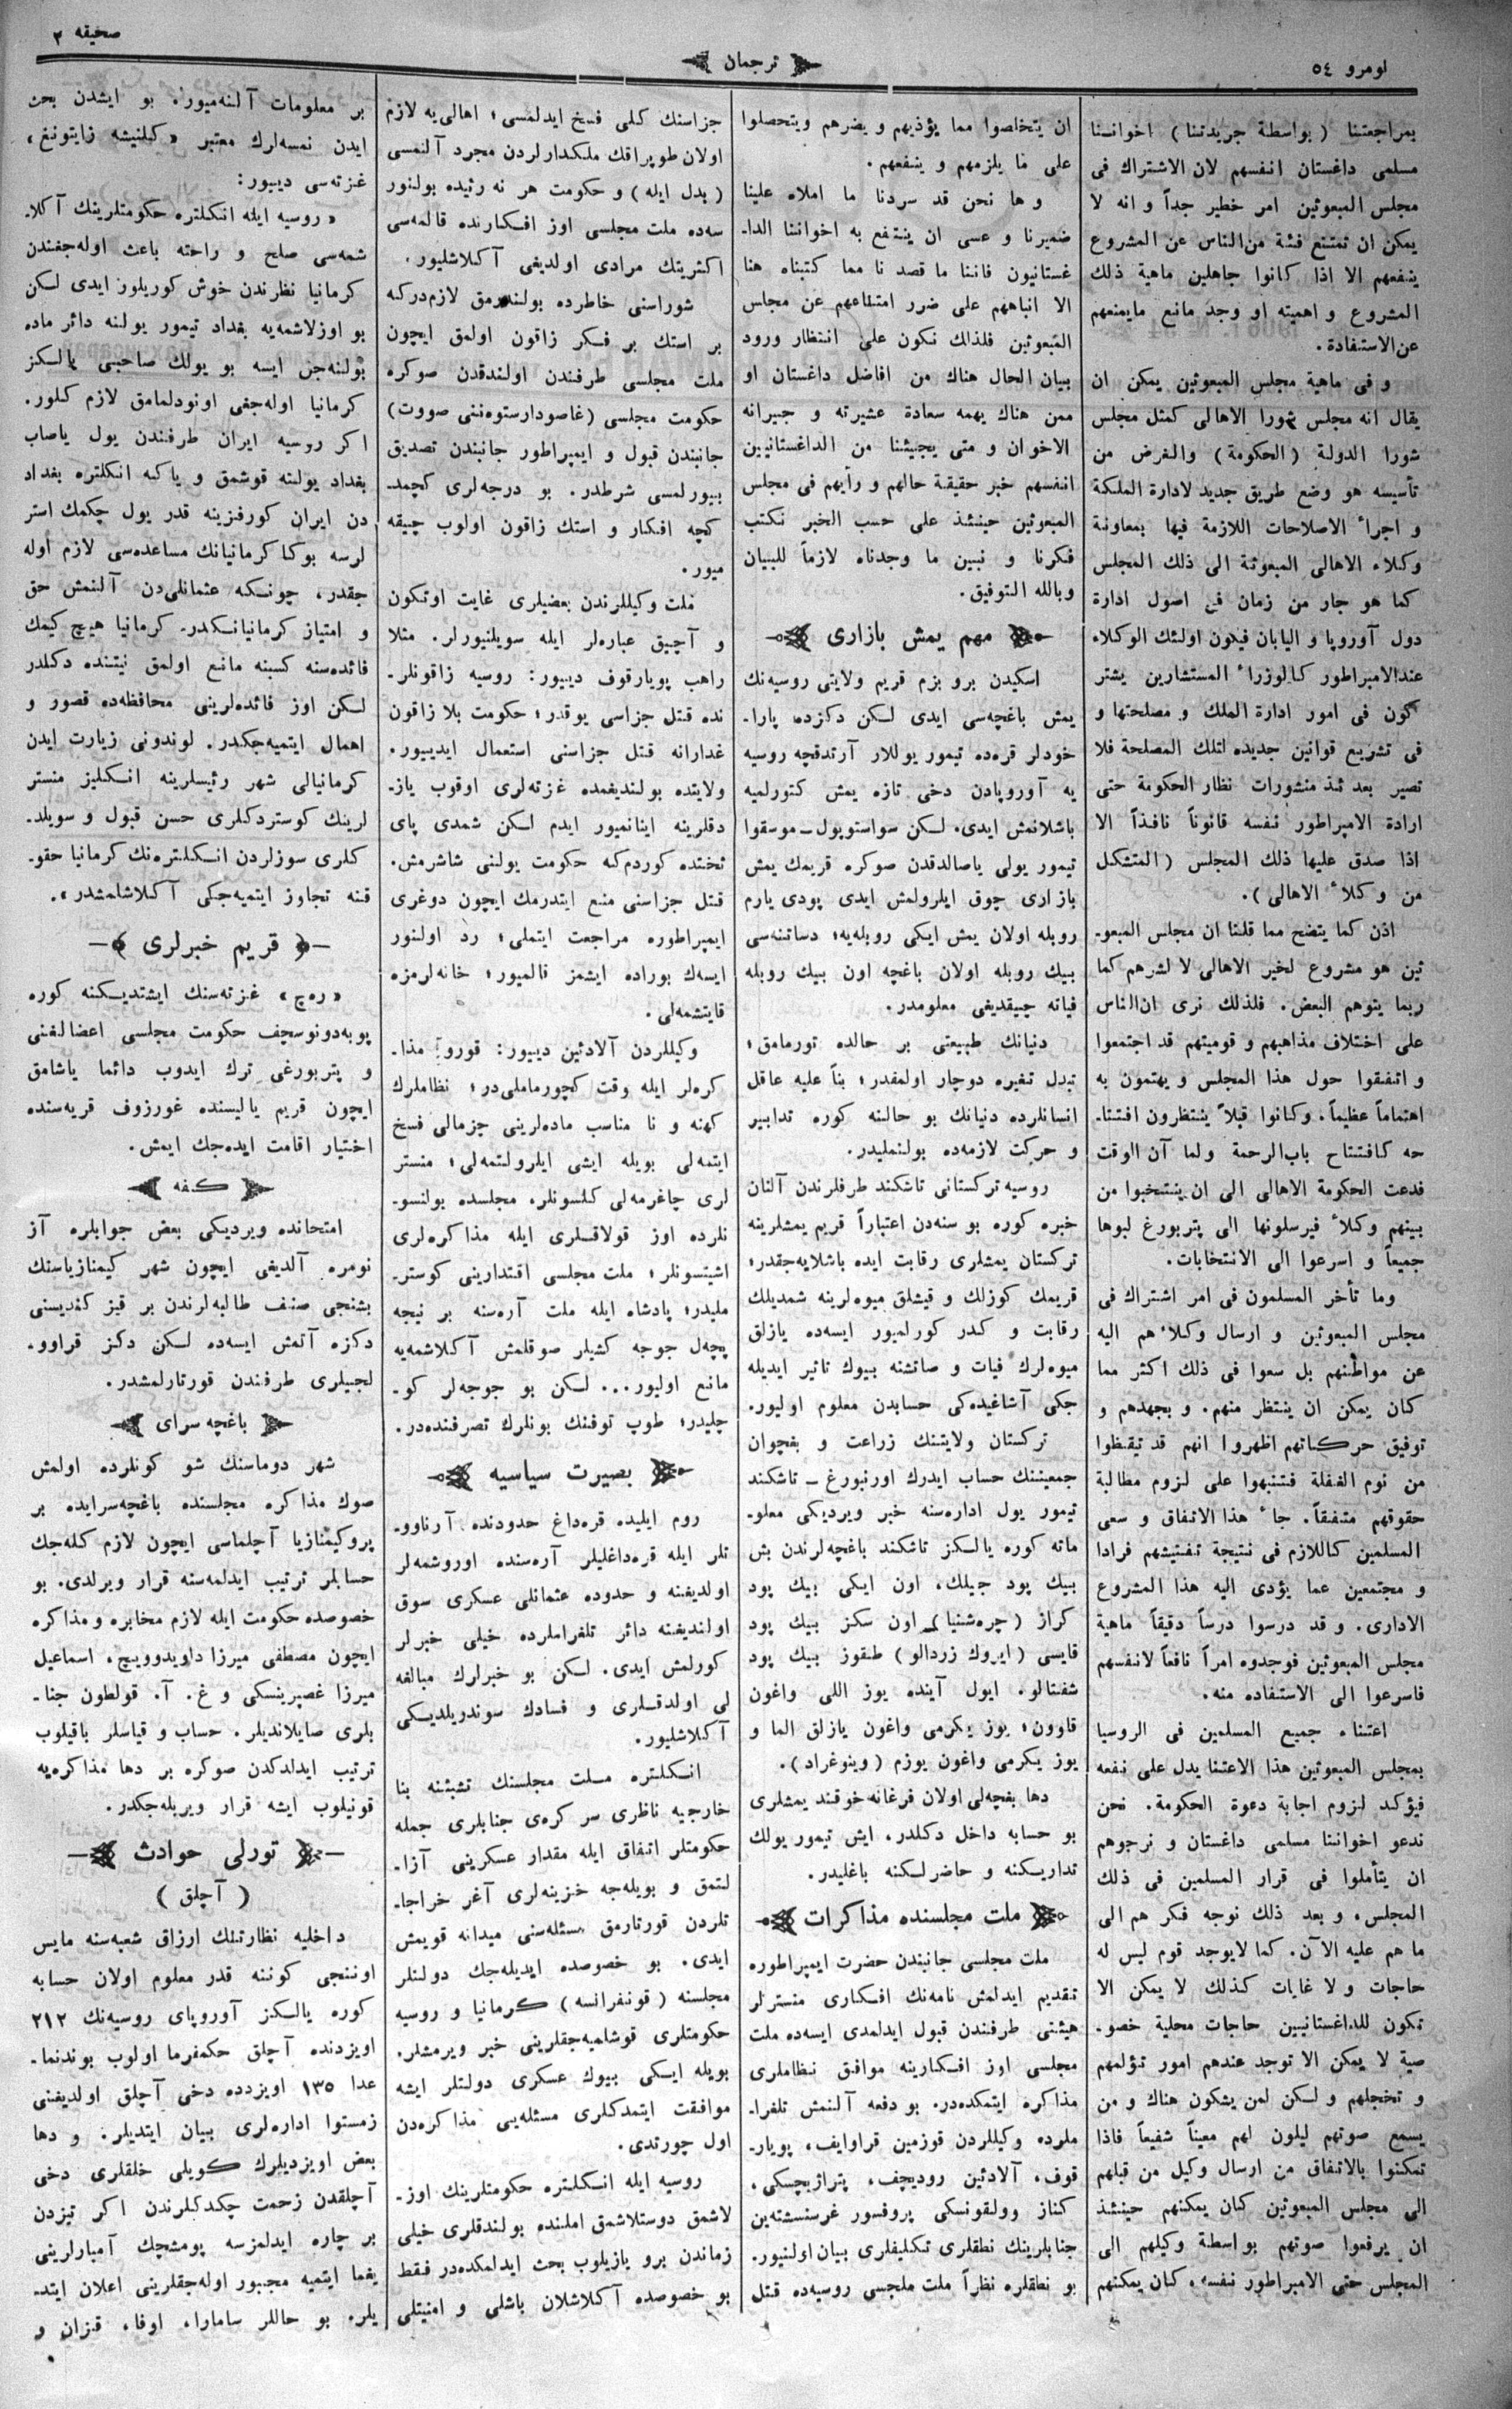 صحيفه ٣
ترجمان
نومرو ٥٤
بمراجعتنا (بواسطة جريدتنا) اخواننا
مسلمى داغستان انفسهم لان الاشتراك فى
مجلس المبعوثين امر خطير جداً و انه لا
يمكن ان تمتنع فئة من الناس عن المشروع
ينفعهم الا اذا كانوا جاهلين ماهية ذلك
المشروع و اهميته او وجد مانع مايمنعهم
عن الاستفادة.
و فى ماهية مجلس المبعوثين يمكن ان
يقال انه مجلس شورا الاهالى كمثل مجلس
شورا الدولة (الحكومة) والغرض من
تأسيسه هو وضع طريق جديد لادارة الملكة
و اجرأ الاصلاحات اللازمة فيها بمعاونة
وكلاء الاهالى المبعوثة الى ذلك المجلس
كما هو جار من زمان فى اصول ادارة
دول آوروپا و اليابان فيكون اولئك الوكلاء
عند الامبراطور كالوزرأ المستشارين يشتر
كون فى امور ادارة الملك و مصلحتها و
فى تشريع قوانين جديده لتلك المصلحة فلا
تصير بعد ئذ منشورات نظار الحكومة حتى
ارادة الامپراطور نفسه قانوناً نافذاً الا
اذا صدق عليها ذلك المجلس (المتشكل
من وكلأ الاهالى).
اذن كما يتضح مما قلنا ان مجلس المبعو-
ثين هو مشروع لخير الاهالى لا لشرهم كما
ربما يتوهم البعض. فلذلك نرى ان الناس
على اختلاف مذاهبهم و قوميتهم قد اجتمعوا
و اتفقوا حول هذا المجلس و يهتمون به
اهتماماً عظيماً. وكانوا قبلاً ينتظرون افتتا-
حه كافتتاح باب الرحمة ولما آن الوقت
فدعت الحكومة الاهالى الى ان ينتخبوا من
بينهم وكلأ فيرسلونها الى پتربورغ لبوها
جميعاً و اسرعوا الى الانتخابات.
وما تأخر المسلمون فى امر اشتراك فى
مجلس المبعوثين و ارسال وكلاءهم اليه
عن مواطنهم بل سعوا فى ذلك اكثر مما
كان يمكن ان ينتظر منهم. و بجهدهم و
توفيق حركاتهم اظهروا انهم قد تيقظوا
من نوم الغفلة فتنبهوا على لزوم مطالبة
حقوقهم متفقاً. جأ هذا الاتفاق و سعى
المسلمين كاللازم فى نتيجة تفتيشهم فرادا
و مجتمعين عما يؤدى اليه هذا المشروع
الادارى. و قد درسوا درساً دقيقاً ماهية
مجلس المبعوثين فوجدوه امراً نافعاً لانفسهم
فاسرعوا الى الاستفاده منه.
اعتناء جميع المسلمين فى الروسيا
بمجلس المبعوثين هذا الاعتنا يدل على نفعه
فيؤكد لزوم اجابة دعوة الحكومة. نحن
ندعو اخواننا مسلمى داغستان و نرجوهم
ان يتأملوا فى قرار المسلمين فى ذلك
المجلس، و بعد ذلك نوجه فكرهم الى
ما هم عليه الآن. كما لايوجد قوم ليس له
حاجات و لا غايات كذلك لا يمكن الا
تكون للداغستانيين حاجات محلية خصو-
صية لا يمكن الا توجد عندهم امور تؤلمهم
و تخجلهم و لكن لمن يشكون هناك و من
يسمع صوتهم ليلون لهم معيناً شفيعاً فاذا
تمكنوا بالاتفاق من ارسال وكيل من قبلهم
الى مجلس المبعوثين كان يمكنهم حينئذ
ان يرفعوا صوتهم بواسطة وكيلهم الى
المجلس حتى الامبراطور نفسه، كان يمكنهم
ان يتخلصوا مما يؤذيهم و يضرهم ويتحصلوا
على ما يلزمهم و ينفعهم.
و ها نحن قد سردنا ما املاه علينا
ضميرنا و عسى ان ينتفع به اخواننا الدا-
غستانيون فاننا ما قصد نا مما كتبناه هنا
الا انباههم على ضرر امتناعهم عن مجلس
المبعوثين فلذلك نكون على انتظار ورود
بيان الحال هناك من افاضل داغستان او
ممن هناك يهمه سعادة عشيرته و جبيرانه
الاخوان و متى يجيئنا من الداغستانيين
انفسهم خبر حقيقة حالهم و رأيهم فى مجلس
المبعوثين حينئذ على حسب الخبر نكتب
فكرنا و نبين ما وجدناه لازماً للبيان
وبالله التوفيق.
مهم يمش بازارى
اسكيدن برو بزم قريم ولايتى روسيه‌نك
يمش باغچه‌سى ايدى لكن دكزده پارا-
خودلر قره‌ده تيمور يوللار آرتدقچه روسيه
يه آوروپادن دخى تازه يمش كتورلميه
باشلانمش ايدى. لكن سواستوپول - موسقوا
تيمور يولى ياصالدقدن صوكره قريمك يمش
بازارى چوق ايلرولمش ايدى پودى يارم
روبله اولان يمش ايكى روبله‌يه؛ دساتنه‌سى
بيك روبله اولان باغچه اون بيك روبله
فياته چيقديغى معلومدر.
دنيانك طبيعتى بر حالده تورمامق؛
تبدل تغيره دوچار اولمقدر؛ بنأ عليه عاقل
انسانلرده دنيانك بو حالنه كوره تدابير
و حركت لازمه‌ده بولنمليدر.
روسيه تركستانى تاشكند طرفلرندن آلنان
خبره كوره بو سنه‌دن اعتباراً قريم يمشلرينه
تركستان يمشلرى رقابت ايده باشلايه‌جقدر؛
قريمك كوزلك و قيشلق ميوه‌لرينه شمديلك
رقابت و كدر كورلميور ايسه‌ده يازلق
ميوه‌لرك فيات و صاتشنه بيوك تاثير ايديله
جكى آشاغيده‌كى حسابدن معلوم اوليور.
تركستان ولايتنك زراعت و بغچوان
جمعيتنك حساب ايدرك اورنبورغ - تاشكند
تيمور يول اداره‌سنه خبر ويرديكى معلو-
ماته كوره يالكز تاشكند باغچه‌لرندن بش
بيك پود جيلك، اون ايكى بيك پود
كراز (چره‌شنيا) اون سكز بيك پود
قايسى (ايروك زردالو) طقوز بيك پود
شفتالو. ايول آينده يوز اللى واغون
قاوون؛ يوز يكرمى واغون يازلق الما و
يوز يكرمى واغون يوزم (وينوغراد).
دها بغچه‌لى اولان فرغانه خوقند يمشلرى
بو حسابه داخل دكلدر. ايش تيمور يولك
تداريكنه و حاضرلكنه باغليدر.
ملت مجلسنده مذاكرات
ملت مجلسى جانبندن حضرت ايمپراطوره
تقديم ايدلمش نامه‌نك افكارى منسترلر
هيئتى طرفندن قبول ايدلمدى ايسه‌ده ملت
مجلسى اوز افكارينه موافق نظاملرى
مذاكره ايتمكده‌در. بو دفعه آلنمش تلغرا-
ملرده وكيللردن قوزمين قراوايف، پويار-
قوف، آلادئين روديچف، پتراژيچسكى،
كناز وولقونسكى پروفسور غرسنشته‌ين
جنابلرينك نطقلرى تكليفلرى بيان اولنيور.
بو نطقلره نظراً ملت ملجسى روسيه‌ده قتل
جزاسنك كلى فسخ ايدلمسى؛ اهالى‌يه لازم
اولان طوپراقك ملكدارلردن مجرد آلنمسى
(بدل ايله) و حكومت هر نه رئيده بولنور
سه‌ده ملت مجلسى اوز افكارنده قالمه‌سى
اكثريتك مرادى اولديغى آكلاشليور.
شوراسنى خاطرده بولندرمق لازم‌دركه
بر استك بر فكر زاقون اولمق ايچون
ملت مجلسى طرفندن اولندقدن صوكره
حكومت مجلسى (غاصودارستوه‌ننى صووت)
جانبندن قبول و ايمپراطور جانبندن تصديق
بيورلمسى شرطدر. بو درجه‌لرى كچمد-
كچه افكار و استك زاقون اولوب چيقه
ميور.
ملت وكيللرندن بعضيلرى غايت اوتكون
و آچيق عباره‌لر ايله سويلنيورلر. مثلا
راهب پويارقوف دييور: روسيه زاقونلر-
نده قتل جزاسى يوقدر؛ حكومت بلا زاقون
غدارانه قتل جزاسنى استعمال ايدييور.
ولايتده بولنديغمده غزته‌لرى اوقوب ياز-
دقلرينه اينانميور ايدم لكن شمدى پاى
تختده كوردم‌كه حكومت يولنى شاشرمش.
قتل جزاسنى منع ايتدرمك ايچون دوغرى
ايمپراطوره مراجعت ايتملى؛ رد اولنور
ايسه‌ك بوراده ايشمز قالميور؛ خانه‌لرمزه
قايتشمه‌لى.
وكيللردن آلادئين دييور: قورو مذا-
كره‌لر ايله وقت كچورماملى‌در؛ نظاملرك
كهنه و نا مناسب ماده‌لرينى چزمالى فسخ
ايتمه‌لى بويله ايشى ايلرولتمه‌لى؛ منستر
لرى چاغرمه‌لى كلسونلر، مجلسده بولنسو-
نلرده اوز قولاقلرى ايله مذاكره‌لرى
اشيتسونلر؛ ملت مجلسى اقتدارينى كوستر-
مليدر؛ پادشاه ايله ملت آره‌سنه بر نيجه
پچه‌ل جوجه كشيلر صوقلمش آكلاشمه‌يه
مانع اوليور... لكن بو جوجه‌لر كو-
چليدر؛ طوپ توفنك بونلرك تصرفنده‌در.
بصيرت سياسيه
روم ايليده قره‌داغ حدودنده آرناوو-
تلر ايله قره‌داغليلر آره‌سنده اوروشمه‌لر
اولديغنه و حدوده عثمانلى عسكرى سوق
اولنديغنه دائر تلغرامرلرده خيلى خبرلر
كورلمش ايدى. لكن بو خبرلرك مبالغه
لى اولدقلرى و فسادك سوندويلديكى
آكلاشليور.
انكلتره ملت مجلسنك تشبثنه بنا
خارجيه ناظرى سر كره‌ى جنابلرى جمله
حكومتلر اتفاق ايله مقدار عسكرينى آزا-
لتمق و بويله‌جه خزينه‌لرى آغر خراجا-
تلردن قورتارمق مسئله‌سنى ميدانه قويمش
ايدى. بو خصوصده ايديله‌جك دولتلر
مجلسنه (قونفرانسه) كرمانيا و روسيه
حكومتلرى قوشلميه‌جقلرينى خبر ويرمشلر.
بويله ايكى بيوك عسكرى دولتلر ايشه
موافقت ايتمدكلرى مسئله‌يى مذاكره‌دن
اول چورتدى.
روسيه ايله انكلتره حكومتلرينك اوز-
لاشمق دوستلاشمق املنده بولندقلرى خيلى
زماندن برو يازيلوب بحث ايدلمكده‌در فقط
بو خصوصده آكلاشلان باشلى و امنيتلى
بر معلومات آلنه‌ميور. بو ايشدن بحث
ايدن نمسه‌لرك معتبر «كلنيشه زايتونغ»
غزته‌سى دييور:
«روسيه ايله انكلتره حكومتلرينك آكلا-
شمه‌سى صلح و راحته باعث اوله‌جغندن
كرمانيا نظرندن خوش كوريلور ايدى لكن
بو اوزلاشمه‌يه بغداد تيمور يولنه دائر ماده
بولنه‌جق ايسه بو يولك صاحبى يالكز
كرمانيا اوله‌جغى اونودلمامق لازم كلور.
اكر روسيه ايران طرفندن يول ياصاب
بغداد يولنه قوشمق و ياكه انكلتره بغداد
دن ايران كورفزينه قدر يول چكمك استر
لرسه بوكا كرمانيانك مساعده‌سى لازم اوله
جقدر، چونكه عثمانلى‌دن آلنمش حق
و امتياز كرمانيانكدر. كرمانيا هيچ كيمك
فائده‌سنه كسبنه مانع اولمق نيتنده دكلدر
لكن اوز فائده‌لرينى محافظه‌ده قصور و
اهمال ايتميه‌جكدر. لوندونى زيارت ايدن
كرمانيالى شهر رئيسلرينه انكليز منستر
لرينك كوستردكلرى حسن قبول و سويلد-
كلرى سوزلردن انكلتره‌نك كرمانيا حقو-
قنه تجاوز ايتميه‌جكى آكلاشلمشدر».
قريم خبرلرى
«ره‌چ» غزته‌سنك ايشتديكنه كوره
پوبه‌دونوسچف حكومت مجلسى اعضالغنى
و پتربورغى ترك ايدوب دائما ياشامق
ايچون قريم ياليسنده غورزوف قريه‌سنده
اختيار اقامت ايده‌جك ايمش.
كفه
امتحانده ويرديكى بعض جوابلره آز
نومره آلديغى ايچون شهر كيمنازياسنك
بشنجى صنف طالبه‌لرندن بر قيز كنديسنى
دكزه آتمش ايسه‌ده لكن دكز قراوو-
لجيلرى طرفندن قورتارلمشدر.
باغچه سراى
شهر دوماسنك شو كونلرده اولمش
صوك مذاكره مجلسنده باغچه‌سرايده بر
پروكيمنازيا آچلماسى ايچون لازم كله‌جك
حسابلر ترتيب ايدلمه‌سنه قرار ويرلدى. بو
خصوصده حكومت ايله لازم مخابره و مذاكره
ايچون مصطفى ميرزا داويدوويچ، اسماعيل
ميرزا غصپرينسكى و غ. آ. قولطون جنا-
بلرى صايلانديلر. حساب و قياسلر باقيلوب
ترتيب ايدلدكدن صوكره بر دها مذاكره‌يه
قونيلوب ايشه قرار ويريله‌جكدر.
تورلى حوادث
(آچلق)
داخليه نظارتنك ارزاق شعبه‌سنه مايس
اوننجى كوننه قدر معلوم اولان حسابه
كوره يالكز آوروپاى روسيه‌نك ٢١٢
اويزدنده آچلق حكمفرما اولوب بوندنما-
عدا ١٣٥ اويزدده دخى آچلق اولديغنى
زمستوا اداره‌لرى بيان ايتديلر. و دها
بعض اويزديلرك كويلى خلقلرى دخى
آچلقدن زحمت چكدكلرندن اكر تيزدن
بر چاره ايدلمزسه پومشچك آمبارلرينى
يغما ايتميه مجبور اوله‌جقلرينى اعلان ايتد-
يلر. بو حاللر سامارا، اوفا، قزان و